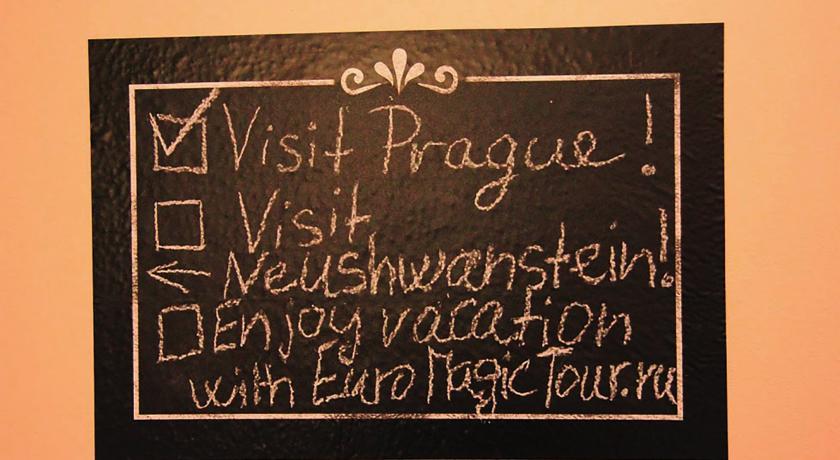 Visit Prague!
Visit
Neushwanstein!
Enjoy vacation
with EuroMagicTour.ru